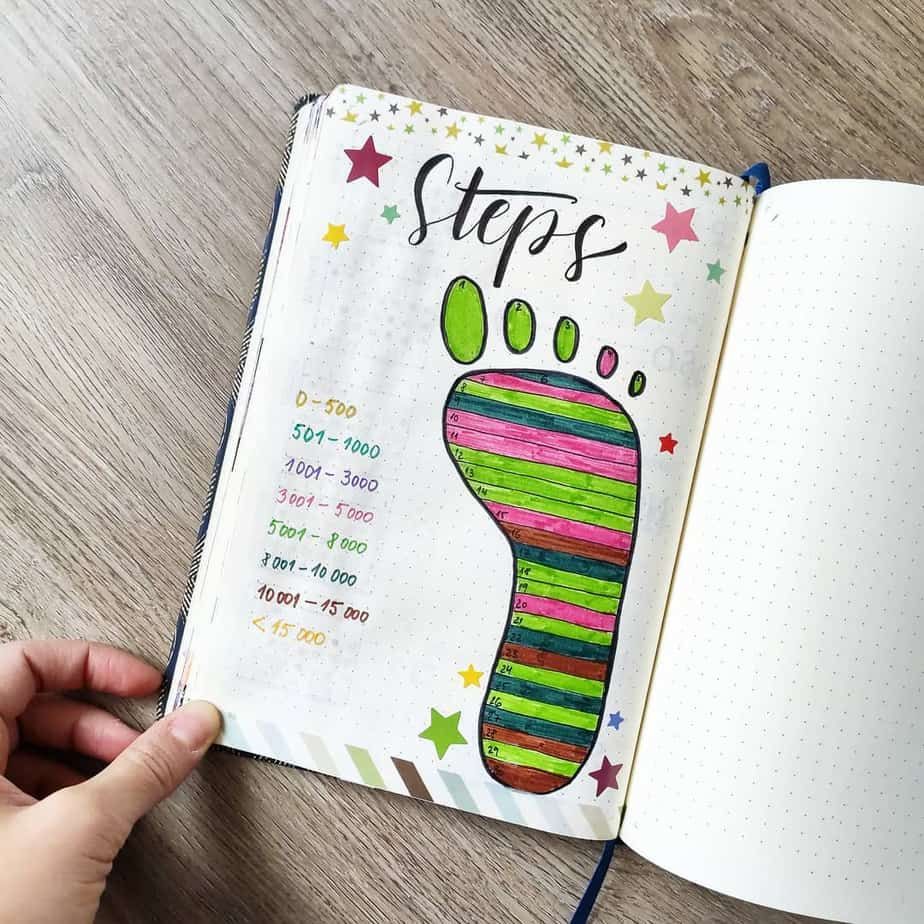 Steps
1
2
3
4
7
6
8
9
10
11
12
13
14
15
16
17
18
19
20
22
23
24
26
27
28
29
0 - 500
501 - 1000
1001 - 3000
3001 - 5000
5001 - 8000
8001 - 10 000
10 001 - 15 000
< 15 000